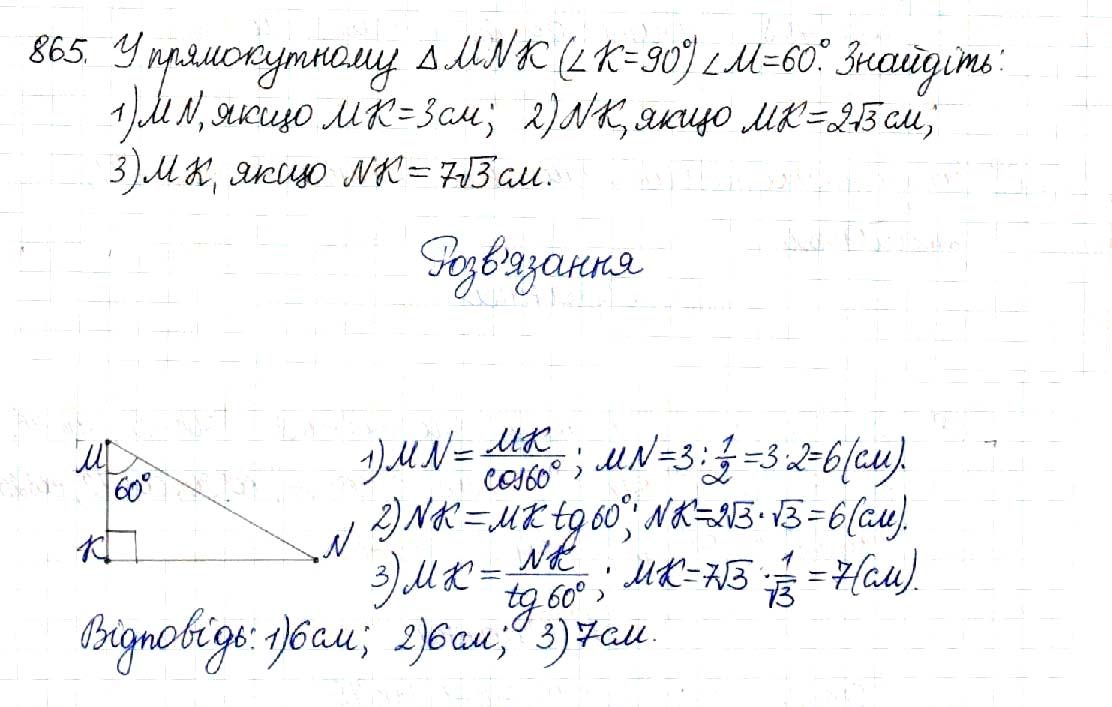 865. У прямокутному △MNK (∠K=90°) ∠M=60°. Знайдіть:
1) MN, якщо MK=3см; 2) NK, якщо MK=2√3 см;
3) MK, якщо NK=7√3 см.
Розв'язання
M
60°
K
N
1) MN = MK/cos60°; MN=3:1/2=3·2=6(см).
2) NK=MK tg60°; NK=2√3·√3=6(см).
3) MK = NK/tg60°; MK=7√3·1/√3=7(см).
Відповідь: 1) 6см; 2) 6см; 3) 7см.